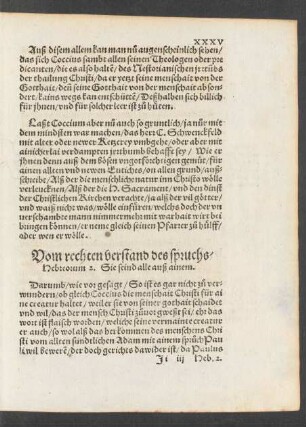 XXXV
Auß disem allem kan man nů augenscheinlich sehen/
das sich Coccius sambt allen seinen Theologen oder pre
dicanten/ die es also halte͂/ des Nestorianischen jrrtůbs
der thailung Christi/ da er yetzt seine menschait von der
Gotthait/ den̄ seine Gotthait von der menschait abson
dert/ kains wegs kan entschütte͂/ Deßhalben sich billich
für jhnen/ vnd für solcher leer ist zů hüten.
Laßt Coccium aber nů auch so gruntlich/ ja nůr mit
dem mindsten war machen/ das herr C. Schwenckfeld
mit alter oder newer Ketzerey vmbgehe/ oder aber mit
ainicherlai verdampten jrrthumb behafft sey/ Wie er
jhnen denn auß dem bösen vngotsförchtigen gemüt/ für
ainen alten vnd newen Eutiches/ on allen grund/ auß/
schreibt/ Alß der die menschliche natur inn Christo wölle
verleucknen/ Alß der die H. Sacrament/ vnd den dinst
der Christlichen Kirchen verachte/ ja alß der vil götter/
vnd waiß nicht was/ wölle einfüren. Welchs doch der vn
verschambte mann nimmermehr mit warhait wirt bei
bringen können/ er neme gleich seinen Pfarrer zů hülff/
oder wen er wölle.
Vom rechten verstand des spruchs/
Hebreorum 2. Sie seind alle auß ainem.
Darumb/ wie vor gesagt/ So ist es gar nicht zů ver
wundern/ ob gleich Coccius die menschait Christi für ai
ne creatur haltet/ weil er sie von seiner gothait schaidet
vnd wil/ das der mensch Christi zůuor gweßt sei/ eh das
wort ist flaisch worden/ welche seine vermainte creatur
er auch/ so wol alß das her kommen des menschens Chri
sti vom alten sündtlichen Adam mit einem sprůch Pau
li wil bewere͂/ der doch gerichts dawider ist/ da Paulus
Ii iij Heb. 2.